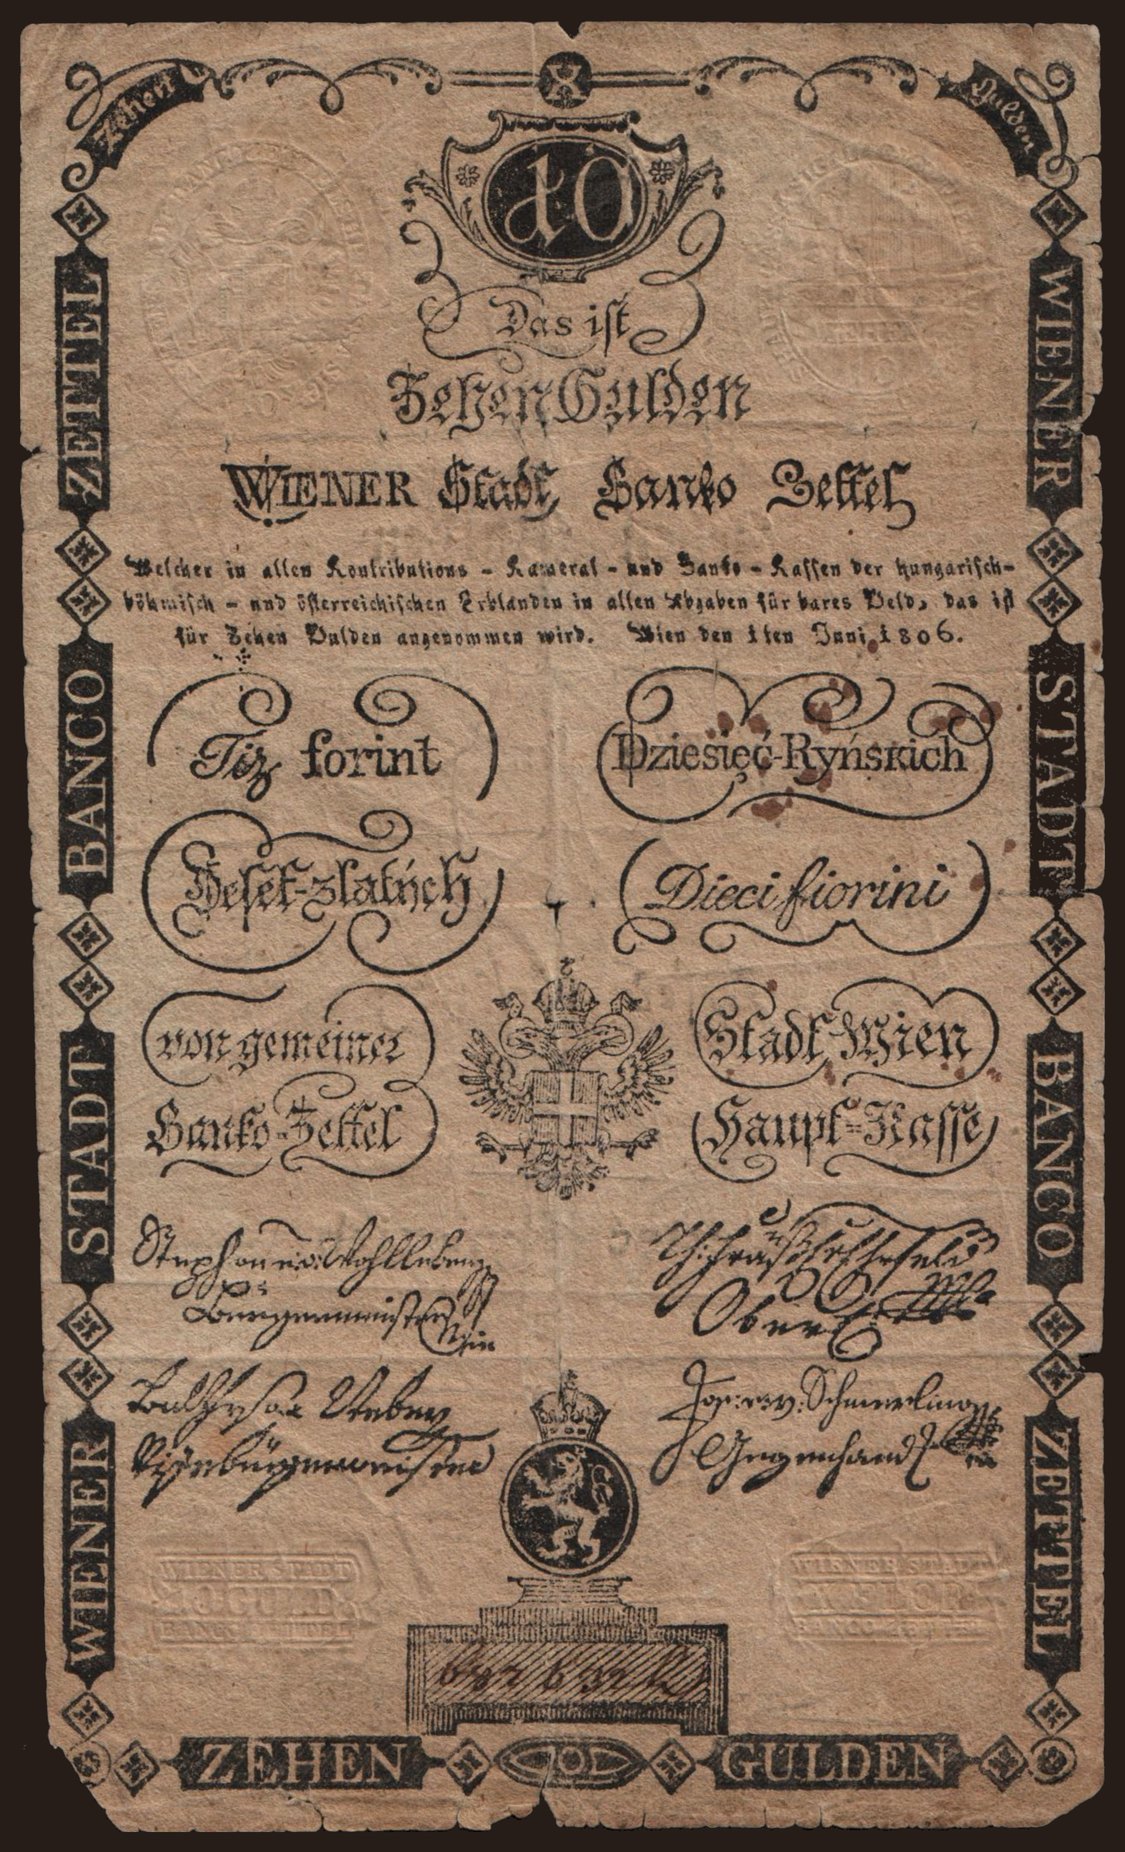 Zehen
Gulden
10
Das ist
Zehen Gulden
WIENER Stadt Banko Zettel
Welcher in allen Kontributions - Kameral - und Banko - Kassen der hungarisch-
böhmisch - und österreichischen Erblanden in allen Abgaben für bares Geld, das ist
für Zehen Gulden angenommen wird. Wien den 1ten Juni 1806.
Tiz forint
Dziesięć-Ryńskich
Deset-zlatých
Dieci fiorini
von gemeiner
Stadt Wien
Banko-Zettel
Haupt=Kasse
Stephan v: Wohlleben
Burgermeister
Ober
Vicebürgermeister
Jos: v: Schmerling
Gegenhand
WIENER STADT
10 GULD
BANCO ZETTEL
WIENER STADT
BANCO ZETTEL
WIENER STADT BANCO ZETTEL
WIENER STADT BANCO ZETTEL
ZEHEN GULDEN